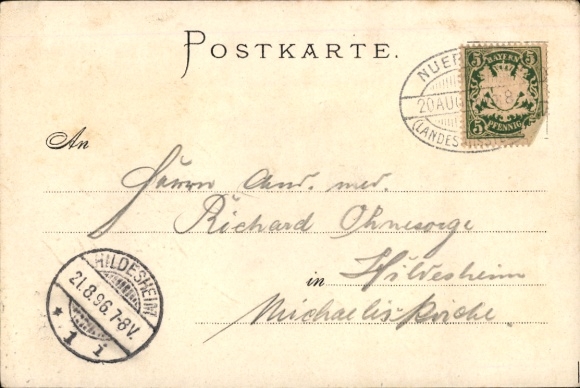 POSTKARTE.
NUER
20 AUG 8
(LANDES
5 BAYERN 5
5 PFENNIG
An
Herrn Cand. med.
Richard Ohnesorge
in Hildesheim
Michaeliskirche
HILDESHEIM
21.8.96.7-8V.
* 1 i